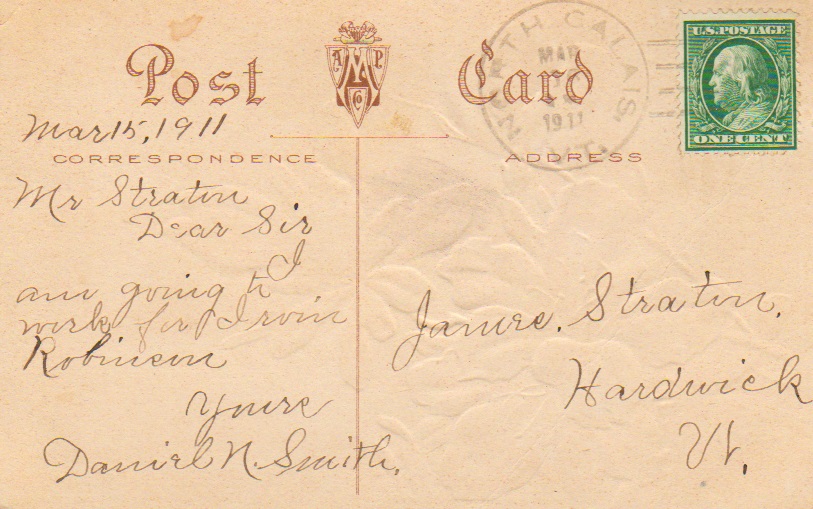 Post Card
A M P Co
NORTH CALAIS,
MAR
1911
VT.
U.S. POSTAGE
ONE CENT
Mar 15, 1911
CORRESPONDENCE
ADDRESS
Mr Straton
Dear Sir
I
am going to
work for Irvin
Robinson
Yours
Daniel N. Smith.
James. Straton.
Hardwick
Vt.